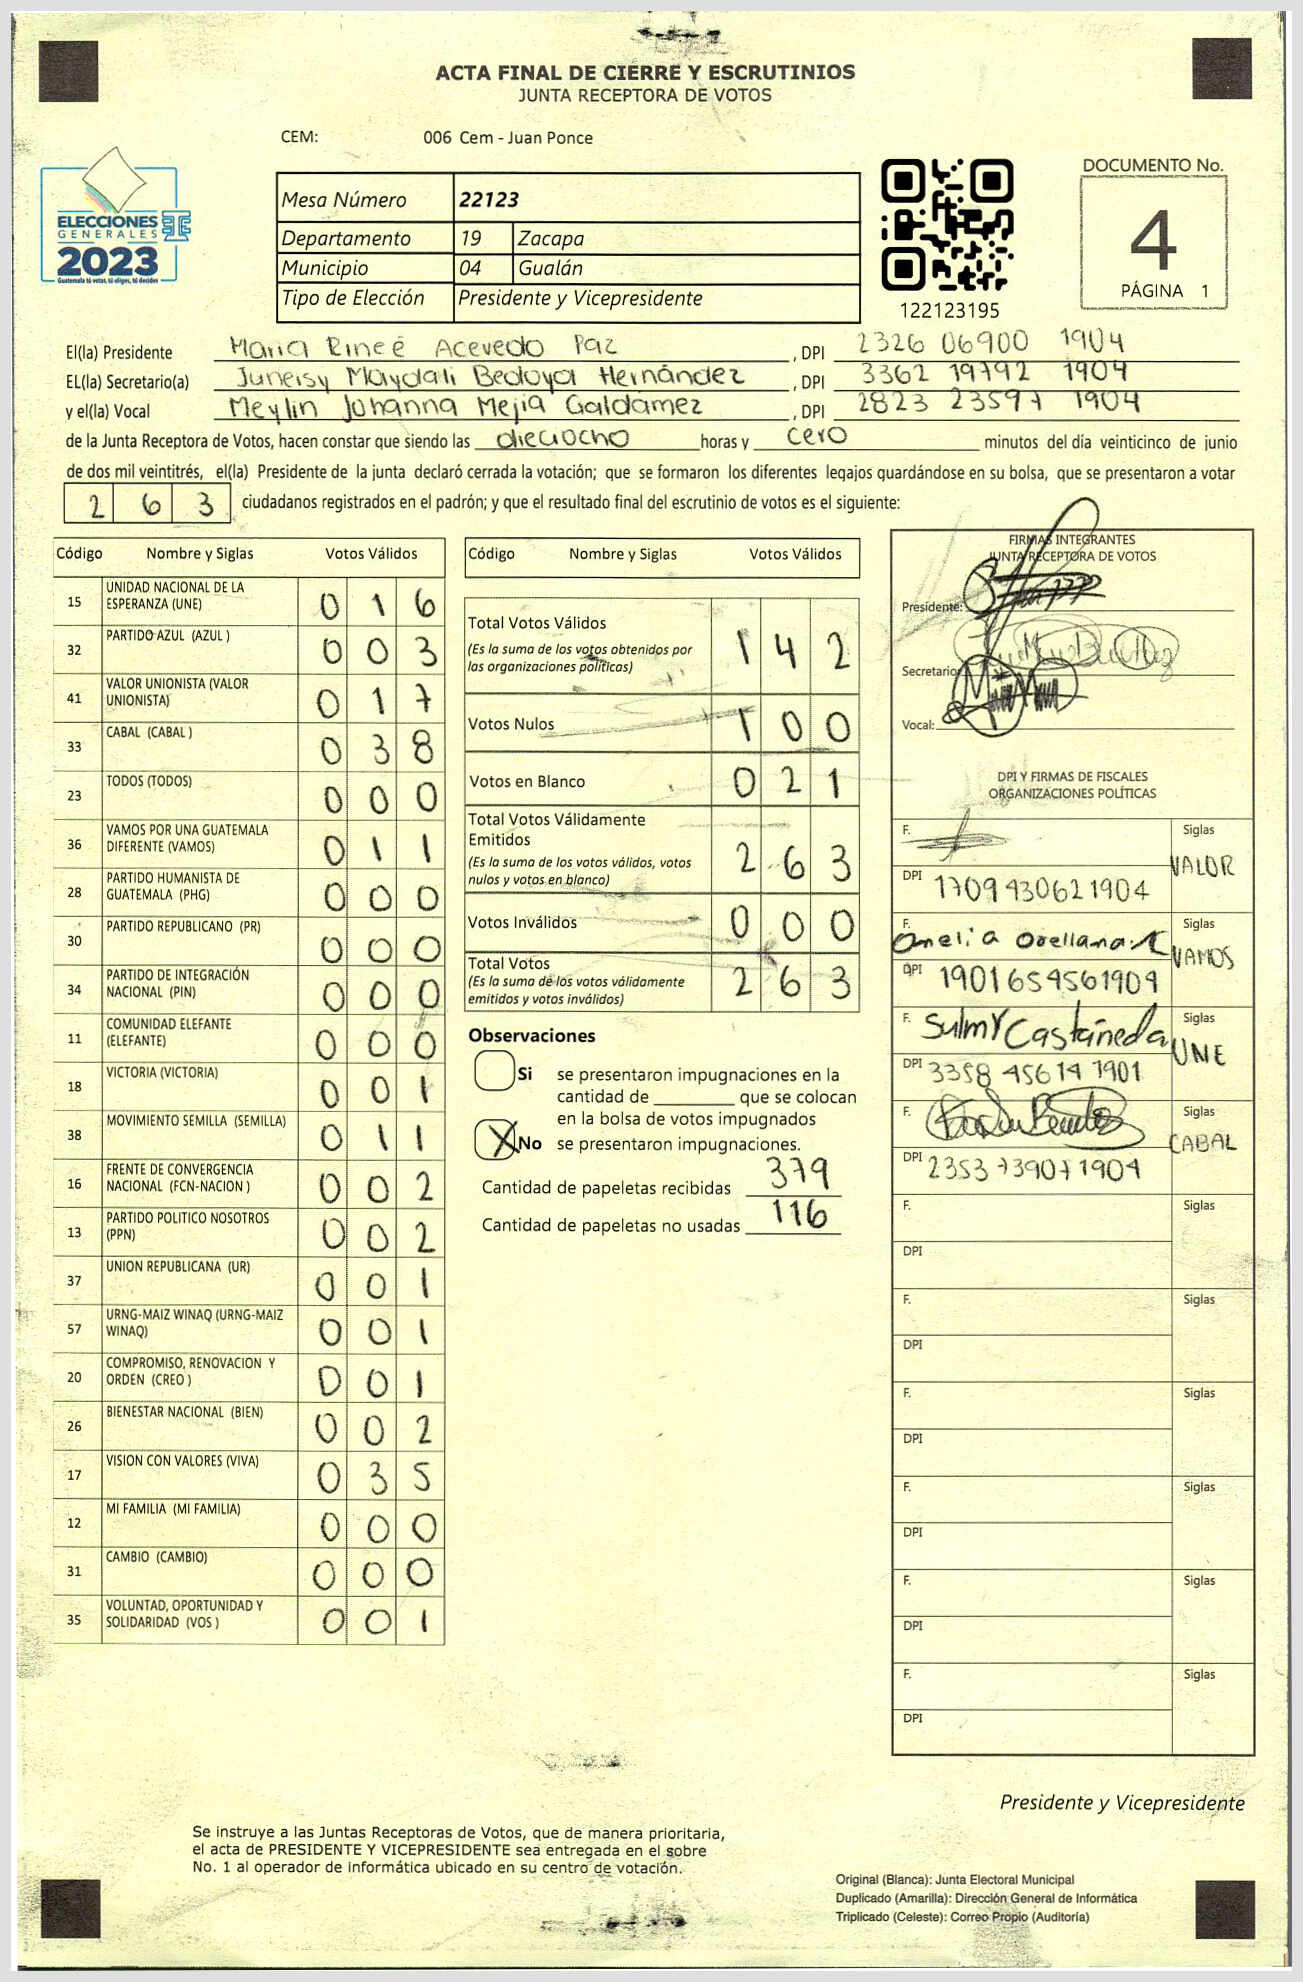 ACTA FINAL DE CIERRE Y ESCRUTINIOS
JUNTA RECEPTORA DE VOTOS
CEM: 006 Cem - Juan Ponce
ELECCIONES
GENERALES
2023
Guatemala tú votas, tú eliges, tú decides
Mesa Número 22123
Departamento 19 Zacapa
Municipio 04 Gualán
Tipo de Elección Presidente y Vicepresidente
122123195
DOCUMENTO No.
4
PÁGINA 1
El(la) Presidente Maria Rineé Acevedo Paz , DPI 2326 06900 1904
EL(la) Secretario(a) Juneisy Maydali Bedoya Hernández , DPI 3362 19792 1904
y el(la) Vocal Meylin Johanna Mejia Galdamez , DPI 2823 23597 1904
de la Junta Receptora de Votos, hacen constar que siendo las dieciocho horas y cero minutos del día veinticinco de junio
de dos mil veintitrés, el(la) Presidente de la junta declaró cerrada la votación; que se formaron los diferentes legajos quardándose en su bolsa, que se presentaron a votar
2 6 3 ciudadanos registrados en el padrón; y que el resultado final del escrutinio de votos es el siguiente:
Código Nombre y Siglas Votos Válidos
15 UNIDAD NACIONAL DE LA ESPERANZA (UNE) 0 1 6
32 PARTIDO AZUL (AZUL ) 0 0 3
41 VALOR UNIONISTA (VALOR UNIONISTA) 0 1 7
33 CABAL (CABAL ) 0 3 8
23 TODOS (TODOS) 0 0 0
36 VAMOS POR UNA GUATEMALA DIFERENTE (VAMOS) 0 1 1
28 PARTIDO HUMANISTA DE GUATEMALA (PHG) 0 0 0
30 PARTIDO REPUBLICANO (PR) 0 0 0
34 PARTIDO DE INTEGRACIÓN NACIONAL (PIN) 0 0 0
11 COMUNIDAD ELEFANTE (ELEFANTE) 0 0 0
18 VICTORIA (VICTORIA) 0 0 1
38 MOVIMIENTO SEMILLA (SEMILLA) 0 1 1
16 FRENTE DE CONVERGENCIA NACIONAL (FCN-NACION ) 0 0 2
13 PARTIDO POLITICO NOSOTROS (PPN) 0 0 2
37 UNION REPUBLICANA (UR) 0 0 1
57 URNG-MAIZ WINAQ (URNG-MAIZ WINAQ) 0 0 1
20 COMPROMISO, RENOVACION Y ORDEN (CREO ) 0 0 1
26 BIENESTAR NACIONAL (BIEN) 0 0 2
17 VISION CON VALORES (VIVA) 0 3 5
12 MI FAMILIA (MI FAMILIA) 0 0 0
31 CAMBIO (CAMBIO) 0 0 0
35 VOLUNTAD, OPORTUNIDAD Y SOLIDARIDAD (VOS ) 0 0 1
Código Nombre y Siglas Votos Válidos
Total Votos Válidos 1 4 2
(Es la suma de los votos obtenidos por
las organizaciones políticas)
Votos Nulos 1 0 0
Votos en Blanco 0 2 1
Total Votos Válidamente
Emitidos 2 6 3
(Es la suma de los votos válidos, votos
nulos y votos en blanco)
Votos Inválidos 0 0 0
Total Votos 2 6 3
(Es la suma de los votos válidamente
emitidos y votos inválidos)
Observaciones
Si se presentaron impugnaciones en la
cantidad de ________ que se colocan
en la bolsa de votos impugnados
X No se presentaron impugnaciones.
Cantidad de papeletas recibidas 379
Cantidad de papeletas no usadas 116
FIRMAS INTEGRANTES
JUNTA RECEPTORA DE VOTOS
Presidente:
Secretario:
Vocal:
DPI Y FIRMAS DE FISCALES
ORGANIZACIONES POLÍTICAS
F. Siglas
VALOR
DPI 1709430621904
F. Amelia Orellana Siglas
VAMOS
DPI 1901654561904
F. Sulmy Castañeda Siglas
UNE
DPI 3358 45614 1901
F. Siglas
CABAL
DPI 2353739071904
F. Siglas
DPI
F. Siglas
DPI
F. Siglas
DPI
F. Siglas
DPI
F. Siglas
DPI
F. Siglas
DPI
Presidente y Vicepresidente
Se instruye a las Juntas Receptoras de Votos, que de manera prioritaria,
el acta de PRESIDENTE Y VICEPRESIDENTE sea entregada en el sobre
No. 1 al operador de informática ubicado en su centro de votación.
Original (Blanca): Junta Electoral Municipal
Duplicado (Amarilla): Dirección General de Informática
Triplicado (Celeste): Correo Propio (Auditoría)